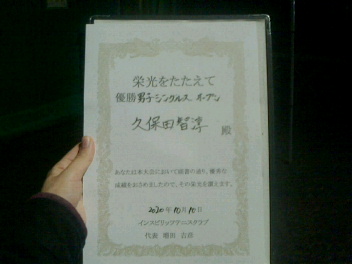 栄光をたたえて
優勝 男子シングルス オープン
久保田智淳 殿
あなたは本大会において頭書の通り、優秀な
成績をおさめましたので、その栄光を讃えます。
2020年10月10日
インスピリッツテニスクラブ
代表